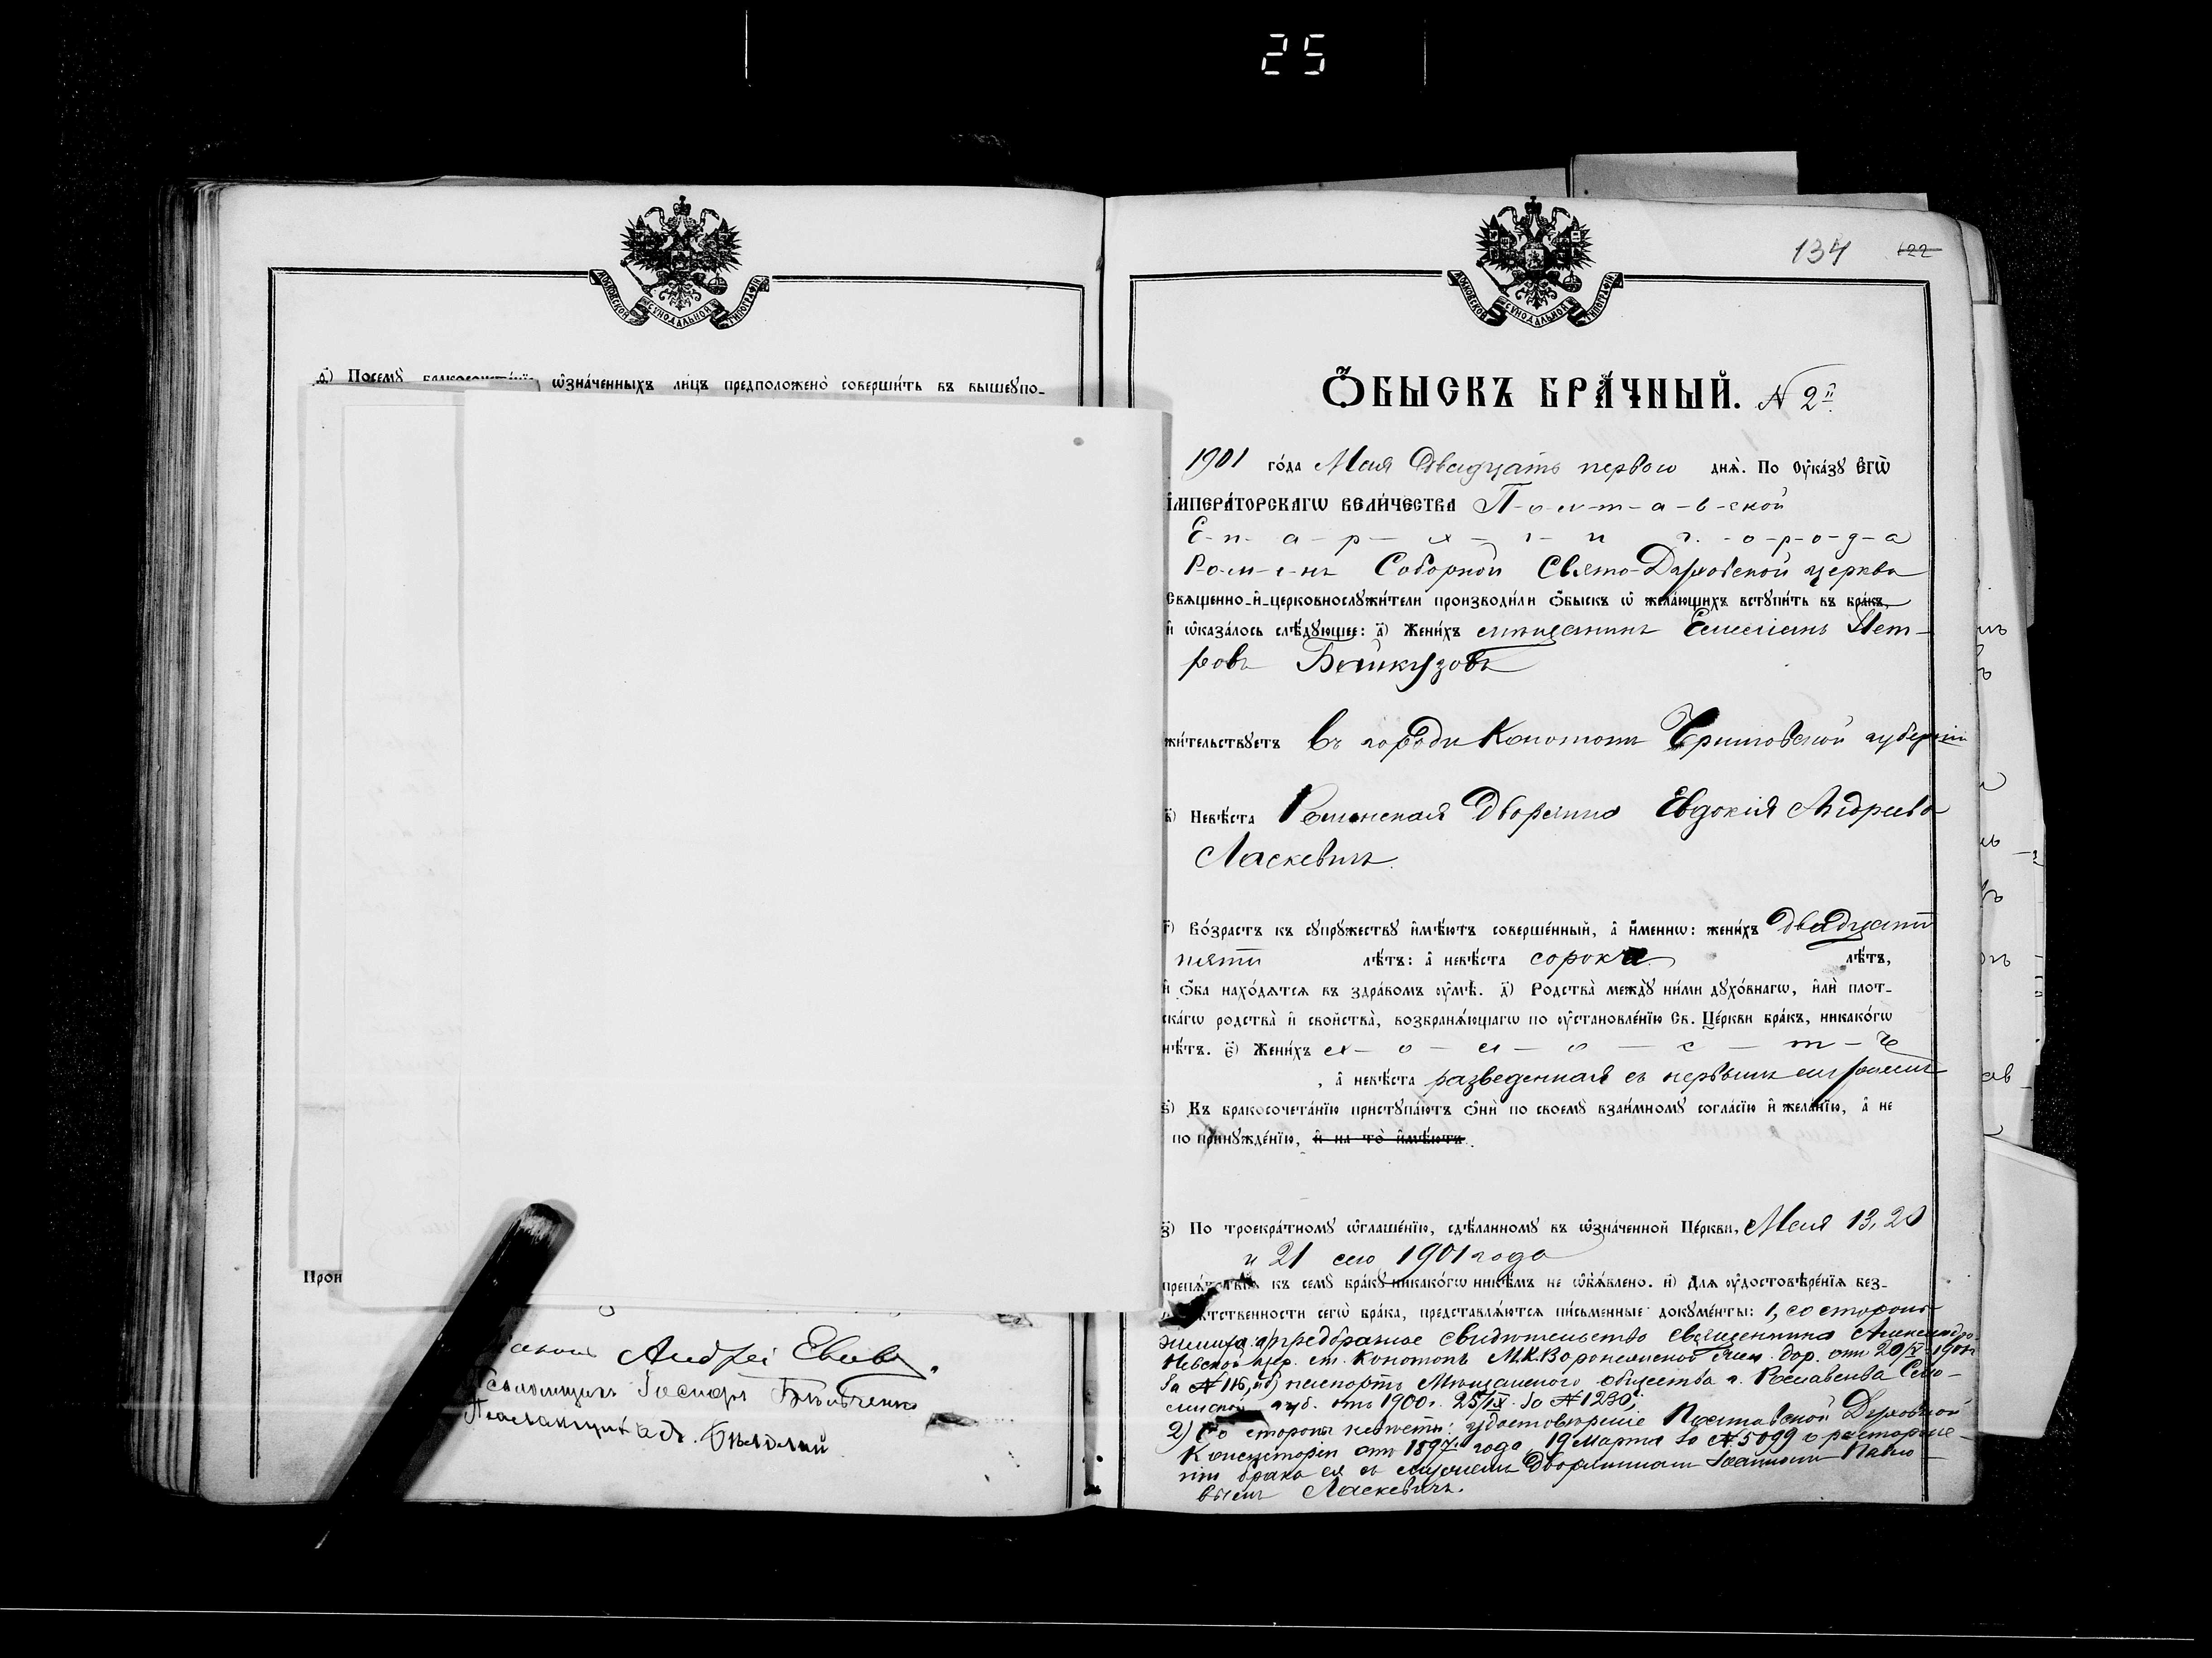 25
МОСКОВСКОЙ СѴНОДАЛЬНОЙ ТИПОГРАФІИ
д҃) Посемꙋ бракосочетаніе ѡ҆зна́ченныхъ ли́цъ предположено̀ соверши́ть въ вышеꙋпо-
Прои
Андрей
Псаломщикъ
Псаломщикъ
134 122
МОСКОВСКОЙ СѴНОДАЛЬНОЙ ТИПОГРАФІИ
Ѻ҆БЫСКЪ БРА́ЧНЫЙ. № 2й
1901 го́да Мая двадцать перваго днѧ̀. По ᲂу҆ка́зꙋ Є҆гѡ̀
І҆МПЕРА́ТОРСКАГѠ ВЕЛИ́ЧЕСТВА П-о-л-т-а-в-ской
Е-п-а-р-х-і-и г.-о-р-о-д-а
Р-о-м-е-нъ Соборной Свято-Духовской церкви
Свѧщенно-и҆-церковнослꙋжи́тели производи́ли ѻ҆́быскъ ѡ҆ жела́ющихъ встꙋпи́ть въ бра́къ,
и҆ ѡ҆каза́лось слѣ́дꙋющее: а҃) Жени́хъ мѣщанинъ Емеліанъ Пет-
ровъ Байкузовъ
жи́тельствꙋетъ въ городѣ Конотопѣ Черниговской губерніи
в҃) Невѣ́ста Роменская Дворянка Евдокія Андреева
Ласкевичъ.
г҃) Во́зрастъ къ сꙋпрꙋ́жествꙋ и҆мѣ́ютъ соверше́нный, а҆ и҆́меннѡ: жени́хъ двадцати
пяти лѣ́тъ: а҆ невѣ́ста сорока лѣ́тъ,
и҆ ѻ҆́ба нахо́дѧтсѧ въ здра́вомъ ᲂу҆мѣ̀. д҃) Родства̀ междꙋ̀ ни́ми дꙋхо́внагѡ, и҆лѝ плот-
ска́гѡ родства̀ и҆ сво́йства̀, возбранѧ́ющагѡ по ᲂу҆становле́нїю Св. Це́ркви бра́къ, никако́гѡ
нѣ́тъ. є҃) Жени́хъ х-о-л-о-с-т-ъ
, а҆ невѣ́ста разведенная съ первымъ мужемъ
ѕ҃) Къ бракосочета́нїю пристꙋпа́ютъ ѻ҆нѝ по своемꙋ̀ взаи́мномꙋ согла́сїю и҆ жела́нїю, а҆ не
по принꙋжде́нїю, и҆ на то̀ и҆мѣ́ютъ
з҃) По троекра́тномꙋ ѡ҆глаше́нїю, сдѣ́ланномꙋ въ ѡ҆зна́ченной Це́ркви, Мая 13, 20
и 21 сего 1901 года
препѧ́тствїѧ къ семꙋ̀ бра́кꙋ никако́гѡ никѣ́мъ не ѡ҆б̾ѧ́влено. и҃) Длѧ ᲂу҆достовѣре́нїѧ без-
препѧ́тственности сегѡ̀ бра́ка, представлѧ́ютсѧ пи́сьменные докꙋме́нты: 1, со стороны
жениха: а) предбрачное свидѣтельство священника Александро-
Невской цер. ст. Конотопъ М.К.Воронежской жел. дор. отъ 20/V 1901
за № 116, и б) паспортъ Мѣщанскаго общества г. Рославля Смо-
ленской губ. отъ 1900 г. 25/IX за № 1230;
2) Со стороны невѣсты: удостовѣреніе Полтавской Духовной
Консисторіи отъ 1897 года 19 Марта за № 5099 о расторже-
ніи брака ея съ мужемъ Дворяниномъ Іоанномъ Павло-
вымъ Ласкевичъ.